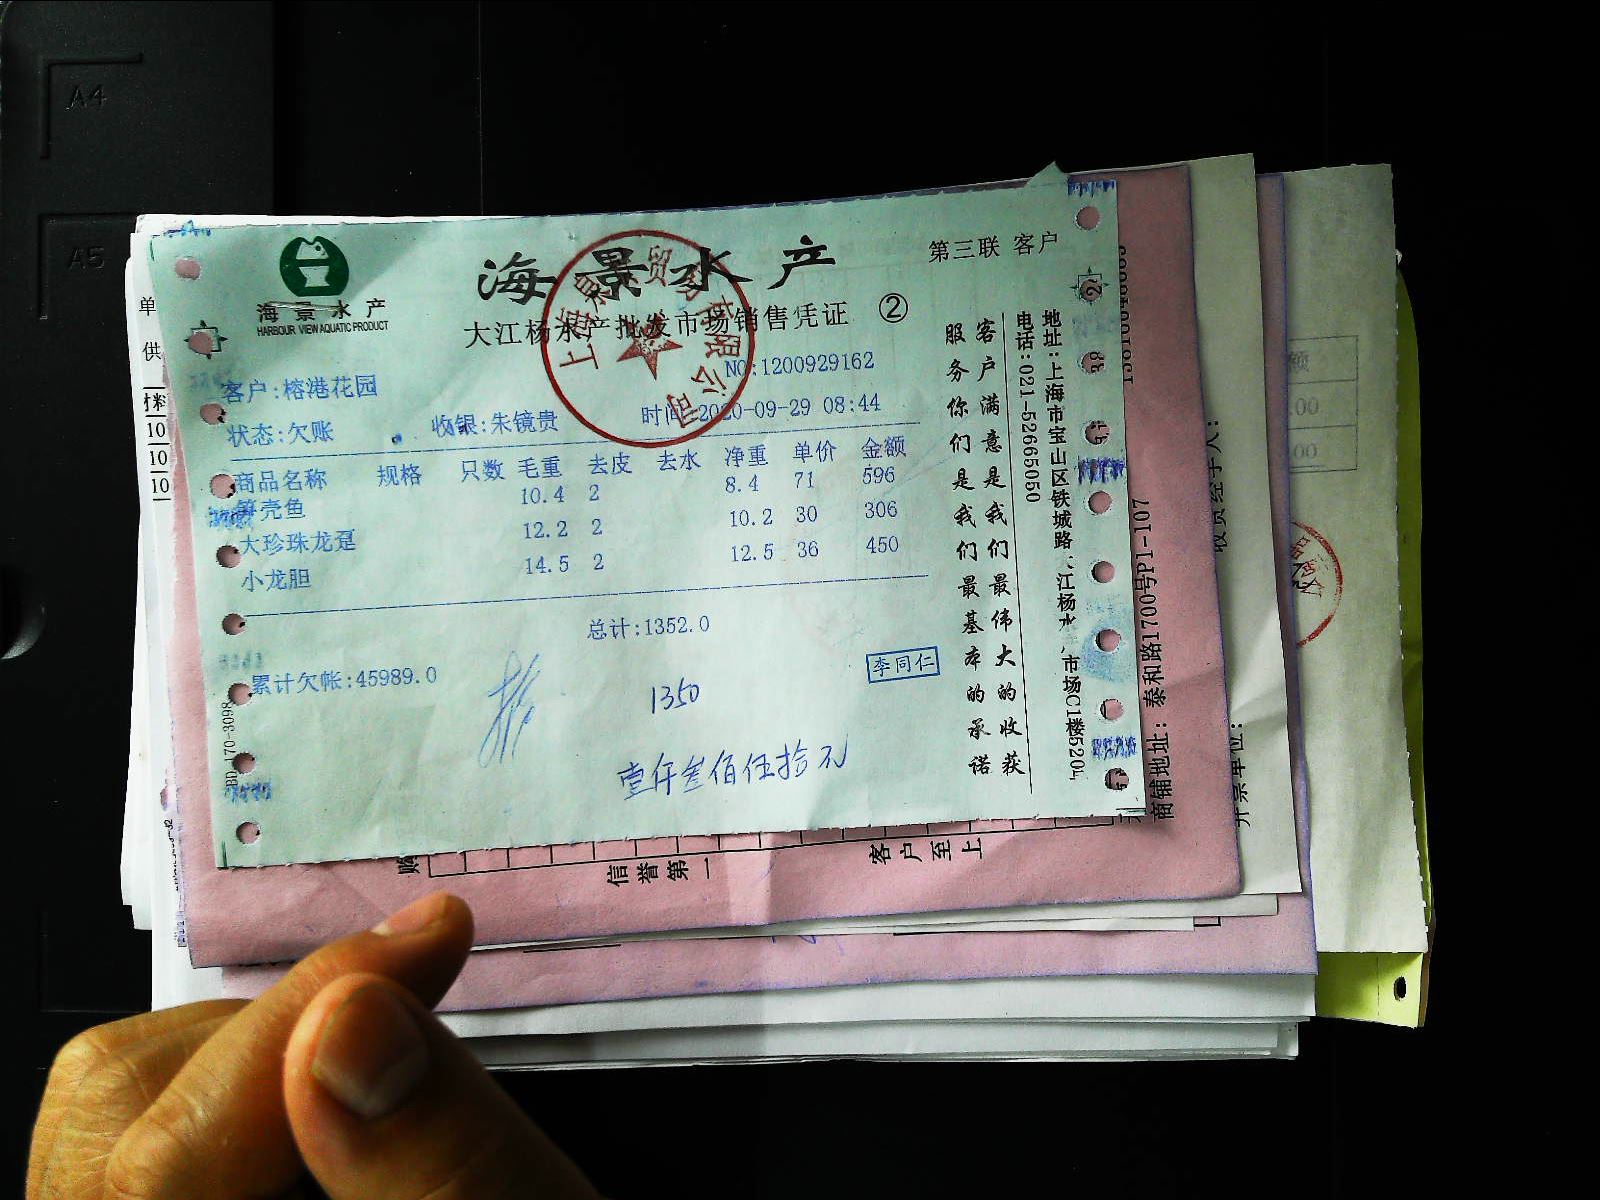 A4
A5
海景水产
HARBOUR VIEW AQUATIC PRODUCT
海景水产
第三联 客户
大江杨水产批发市场销售凭证 ②
NO:1200929162
客户:榕港花园
状态:欠账 收银:朱镜贵 时间:2020-09-29 08:44
商品名称 规格 只数 毛重 去皮 去水 净重 单价 金额
笋壳鱼 10.4 2 8.4 71 596
大珍珠龙趸 12.2 2 10.2 30 306
小龙胆 14.5 2 12.5 36 450
总计:1352.0
累计欠帐:45989.0
李同仁
1350
壹仟叁佰伍拾元
客户满意是我们最伟大的收获
服务你们是我们最基本的承诺
地址:上海市宝山区铁城路 江杨水 市场C1楼5204
电话:021-52665050
商铺地址:泰和路1700号P1-107
开票单位:
信誉第一
客户至上
单
供
材料
10
10
10